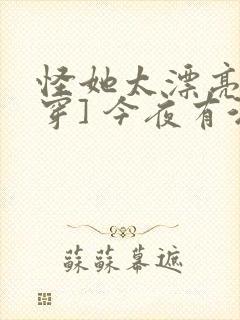 怪她太漂亮
穿]今夜有
蘇蘇幕遮